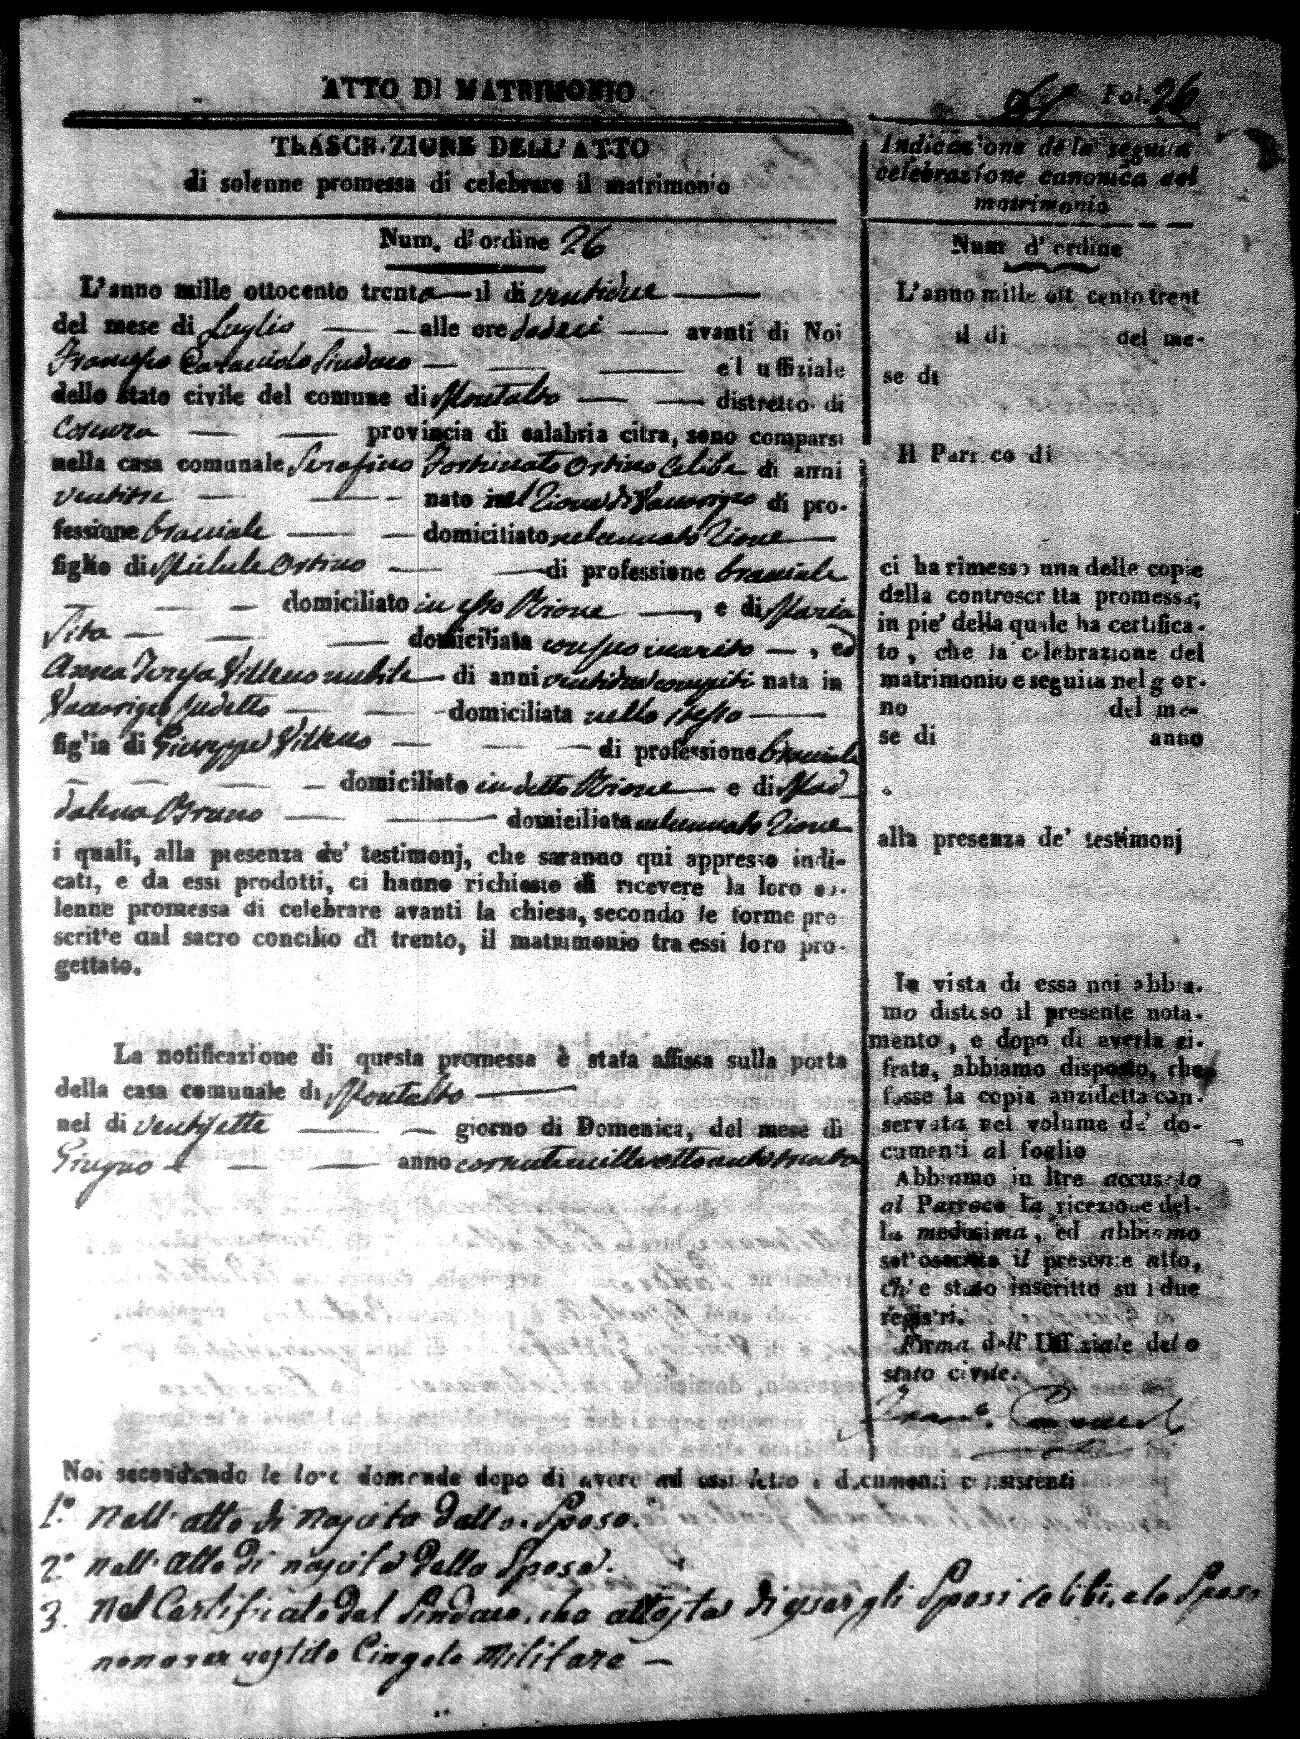 ATTO DI MATRIMONIO
Fol. 26
TRASCRIZIONE DELL' ATTO
di solenne promessa di celebrare il matrimonio
Num. d'ordine 26
L'anno mille ottocento trenta il di ventidue
del mese di Luglio alle ore dodeci avanti di Noi
Francesco Caracciolo Sindaco ed uffiziale
dello stato civile del comune di Montalto distretto di
Cosenza provincia di calabria citra, sono comparsi
nella casa comunale Serafino Fortunato Ortino Celibe di anni
ventitre nato nel Rione di Vaccarizzo di pro-
fessione bracciale domiciliato nel cennato Rione
figlio di Michele Ortino di professione bracciale
domiciliato in esso Rione, e di Maria
Sita domiciliata con suo marito, ed
Anna Teresa nubile di anni ventidue compiti nata in
Vaccarizzo sudetto domiciliata nello stesso
figlia di Giuseppe di professione bracciale
domiciliato in detto Rione e di Mad
dalena Bruno domiciliata nel cennato Rione
i quali, alla presenza de' testimonj, che saranno qui appresso indi-
cati, e da essi prodotti, ci hanno richiesto di ricevere la loro so-
lenne promessa di celebrare avanti la chiesa, secondo le forme pre
scritte dal sacro concilio di trento, il matrimonio tra essi loro pro-
gettato.
La notificazione di questa promessa è stata affissa sulla porta
della casa comunale di Montalto
nel di ventisette giorno di Domenica, del mese di
Giugno anno corrente mille ottocento trenta
Indicazione della seguita
celebrazione canonica del
matrimonio
Num d'ordine
L'anno mille ott cento trent
il di del me-
se di
Il Parroco di
ci ha rimesso una delle copie
della controscritta promessa;
in pie' della quale ha certifica-
to, che la celebrazione del
matrimonio e seguita nel gior-
no del me-
se di anno
alla presenza de' testimonj
In vista di essa noi abbia-
mo disteso il presente nota-
mento, e dopo di averla ci-
frata, abbiamo disposto, che
fosse la copia anzidetta con-
servata nel volume de' do-
cumenti al foglio
Abbiamo in ltre accusato
al Parroco la ricezione del-
la medesima, ed abbiamo
sottoscritto il presente atto,
ch'e stato inscritto su i due
registri.
Firma dell' Uffiziale dello
stato civile.
Noi secondando le loro domande dopo di avere ad essi letto i documenti consistenti
1.° Nell' atto di nascita dello Sposo.
2.° nell' atto di nascita della Sposa.
3. Nel Certificato del Sindaco, che attesta di esser gli Sposi celibi, e lo Sposo
non aver vestito Cingolo Militare